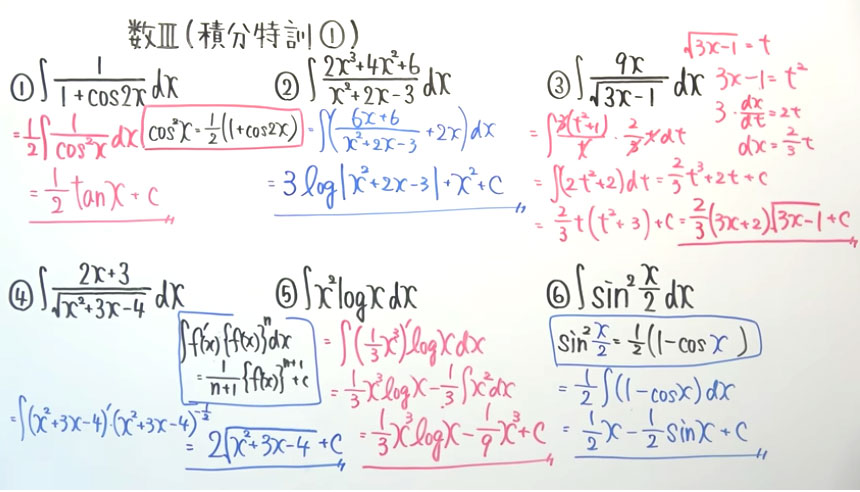 数Ⅲ(積分特訓①)
① ∫ 1/(1+cos2x) dx
= 1/2 ∫ 1/cos²x dx  cos²x = 1/2(1+cos2x)
= 1/2 tanx + C
② ∫ (2x³+4x²+6)/(x²+2x-3) dx
= ∫( (6x+6)/(x²+2x-3) + 2x ) dx
= 3log|x²+2x-3| + x² + C
③ ∫ 9x/√(3x-1) dx
√(3x-1) = t
3x-1 = t²
3·dx/dt = 2t
dx = 2/3 t
= ∫ 3(t²+1)/t · 2/3 t dt
= ∫(2t²+2)dt = 2/3 t³ + 2t + C
= 2/3 t(t²+3) + C = 2/3(3x+2)√(3x-1) + C
④ ∫ (2x+3)/√(x²+3x-4) dx
∫f'(x){f(x)}ⁿdx
= 1/(n+1) {f(x)}ⁿ⁺¹ + C
= ∫(x²+3x-4)'·(x²+3x-4)^(-1/2)
= 2√(x²+3x-4) + C
⑤ ∫x²logx dx
= ∫(1/3 x³)'logx dx
= 1/3 x³logx - 1/3 ∫x²dx
= 1/3 x³logx - 1/9 x³ + C
⑥ ∫sin² x/2 dx
sin² x/2 = 1/2(1-cosx)
= 1/2 ∫(1-cosx)dx
= 1/2 x - 1/2 sinx + C